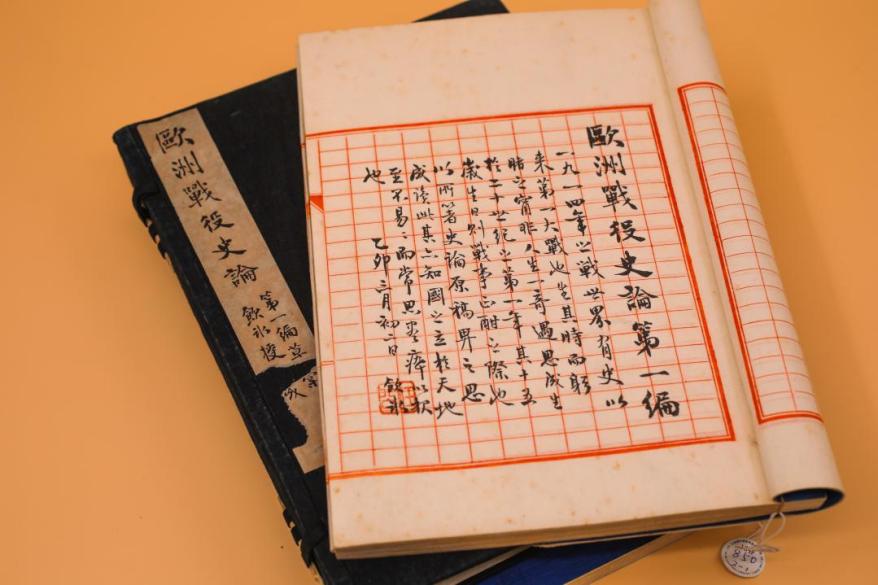 歐洲戰役史論第一編
一九一四年之戰世界有史以
来第一大戰也生其時而躬
睹之寧非人生一奇遇思成生
於二十世紀之第一年其十五
歲生日則戰事正酣之際也
以所著史論原稿畀之思
成讀此其亦知國之立於天地
至不易〻而常思盡瘁以報
也 乙卯三月初二日 飲冰
歐洲戰役史論
第一編草
飲冰授
850
2-1